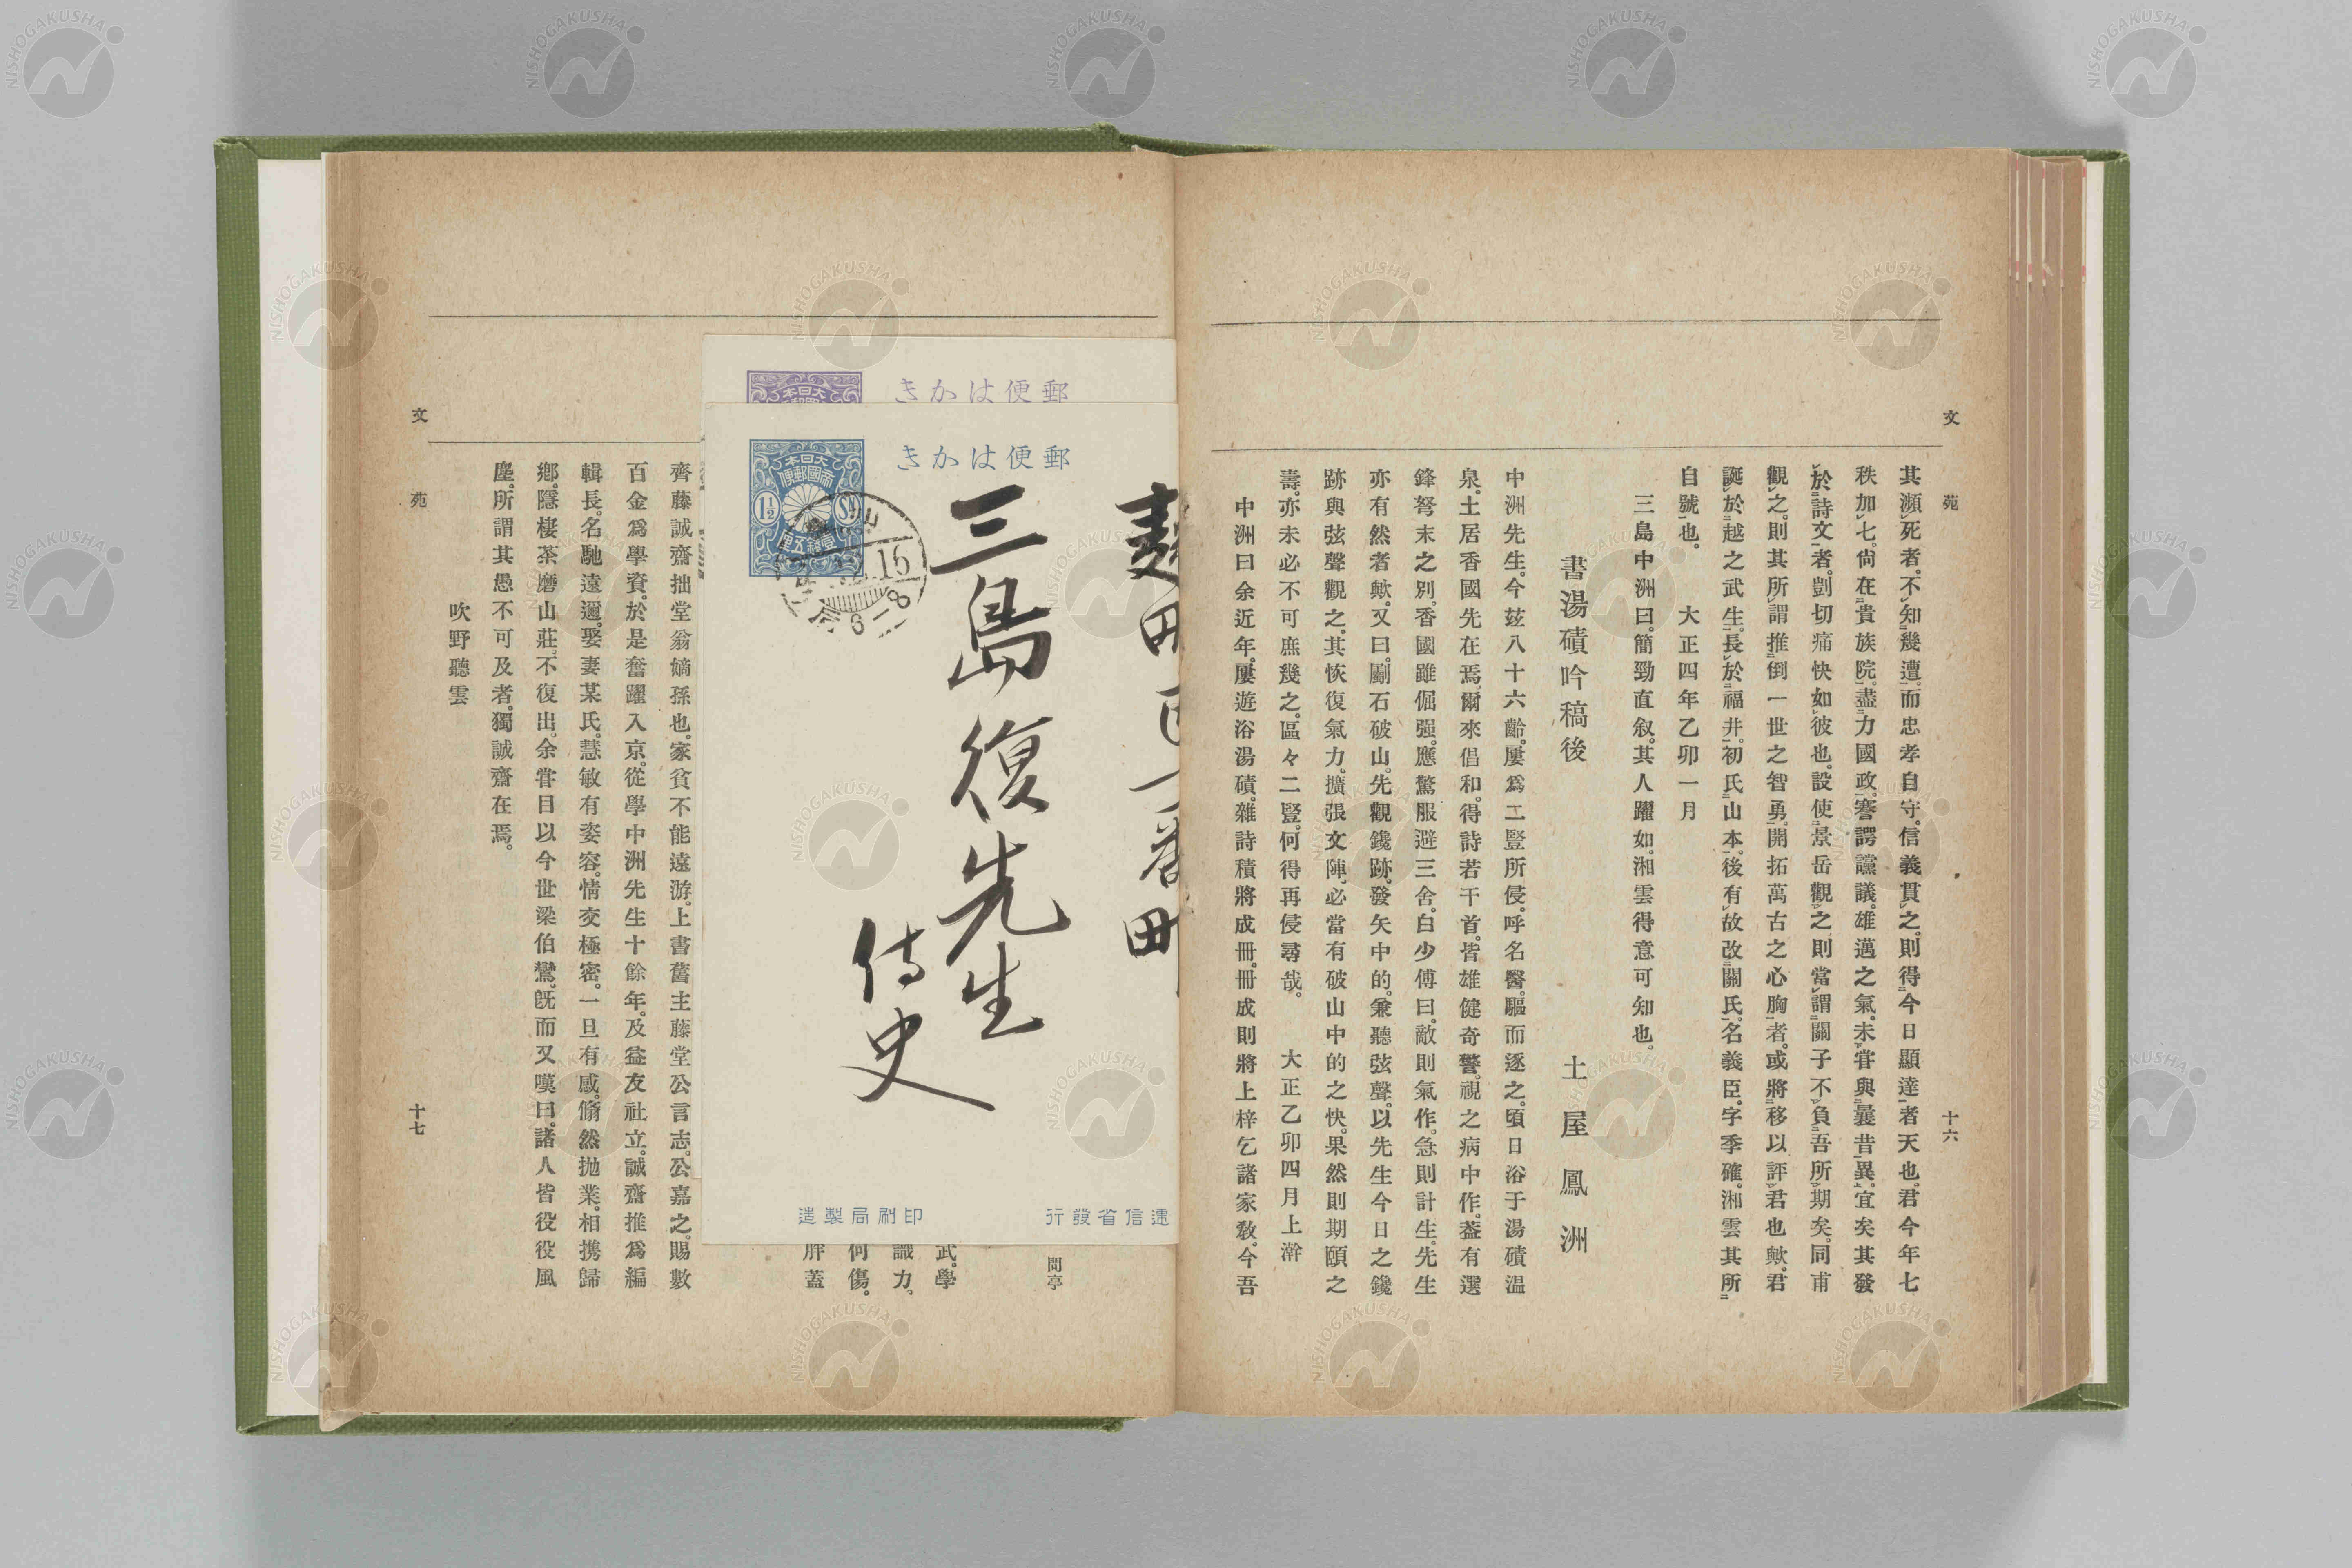 文苑
十六
其瀕死者。不知幾遭。而忠孝自守。信義貫之。則得今日顯達者天也。君今年七
秩加七。尙在貴族院。盡力國政。謇諤讜議。雄邁之氣。未嘗與曩昔異。宜矣其發
於詩文者。剴切痛快如彼也。設使景岳觀之。則當謂關子不負吾所期矣。同甫
觀之。則其所謂推倒一世之智勇。開拓萬古之心胸者。或將移以評君也歟。君
誕於越之武生。長於福井。初氏山本。後有故改關氏。名義臣。字季確。湘雲其所
自號也。 大正四年乙卯一月
三島中洲曰。簡勁直叙。其人躍如。湘雲得意可知也。
書湯磧吟稿後 土屋鳳洲
中洲先生。今茲八十六齡。屢爲二豎所侵。呼名醫。驅而逐之。頃日浴于湯磧温
泉。土居香國先在焉。爾來倡和。得詩若干首。皆雄健奇警。視之病中作。葢有選
鋒弩末之別。香國雖倔强。應驚服避三舍。白少傅曰。敵則氣作。急則計生。先生
亦有然者歟。又曰。劚石破山。先觀鑱跡。發矢中的。兼聽弦聲。以先生今日之鑱
跡與弦聲觀之。其恢復氣力。擴張文陣。必當有破山中的之快。果然則期頤之
壽。亦未必不可庶幾之。區々二豎。何得再侵尋哉。 大正乙卯四月上澣
中洲曰余近年。屢遊浴湯磧。雜詩積將成冊。冊成則將上梓乞諸家敎。今吾
郵便はかき
郵便はかき
大日本
大日本
帝國郵便
1½
Sn
壹錢五厘
16
6–8
三島復先生
侍史
遞信省發行
印刷局製造
問亭
武。學
識力。
何傷。
胖蓋
齊藤誠齋拙堂翁嫡孫也。家貧不能遠游。上書舊主藤堂公言志。公嘉之。賜數
百金爲學資。於是奮躍入京。從學中洲先生十餘年。及益友社立。誠齋推爲編
輯長。名馳遠邇。娶妻某氏。慧敏有姿容。情交極密。一旦有感。翛然抛業。相携歸
鄕。隱棲茶磨山莊。不復出。余嘗目以今世梁伯鸞。旣而又嘆曰。諸人皆役役風
塵。所謂其愚不可及者。獨誠齋在焉。
吹野聽雲
文苑
十七